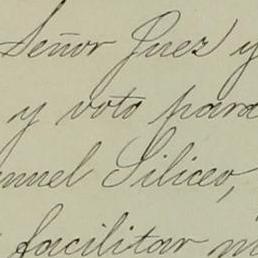 Señor Juez y
y voto para
anuel Siliceo,
facilitar